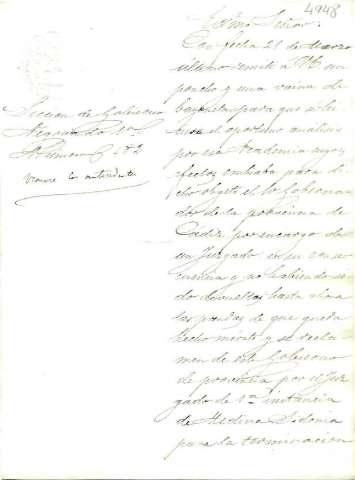 4948
Excmo Señor.
Con fecha 21 de Marzo
último remití a VE un
poncho y una vaina de
bayoneta para que se hi-
ciera el oportuno analisis
por esa Academia cuyos
efectos embiaba para di-
cho objeto el Sr Goberna-
dor de la provincia de
Cádiz por encargo de
un Juzgado en su conse-
cuencia y no habiendo si-
do devueltas hasta ahora
las prendas de que queda
hecho mérito y se recla-
men de este Gobierno
de provincia por el Juz-
gado de 1ª instancia
de Medina Sidonia
para la terminacion
Seccion de Gobierno
Negociado 1º
Número